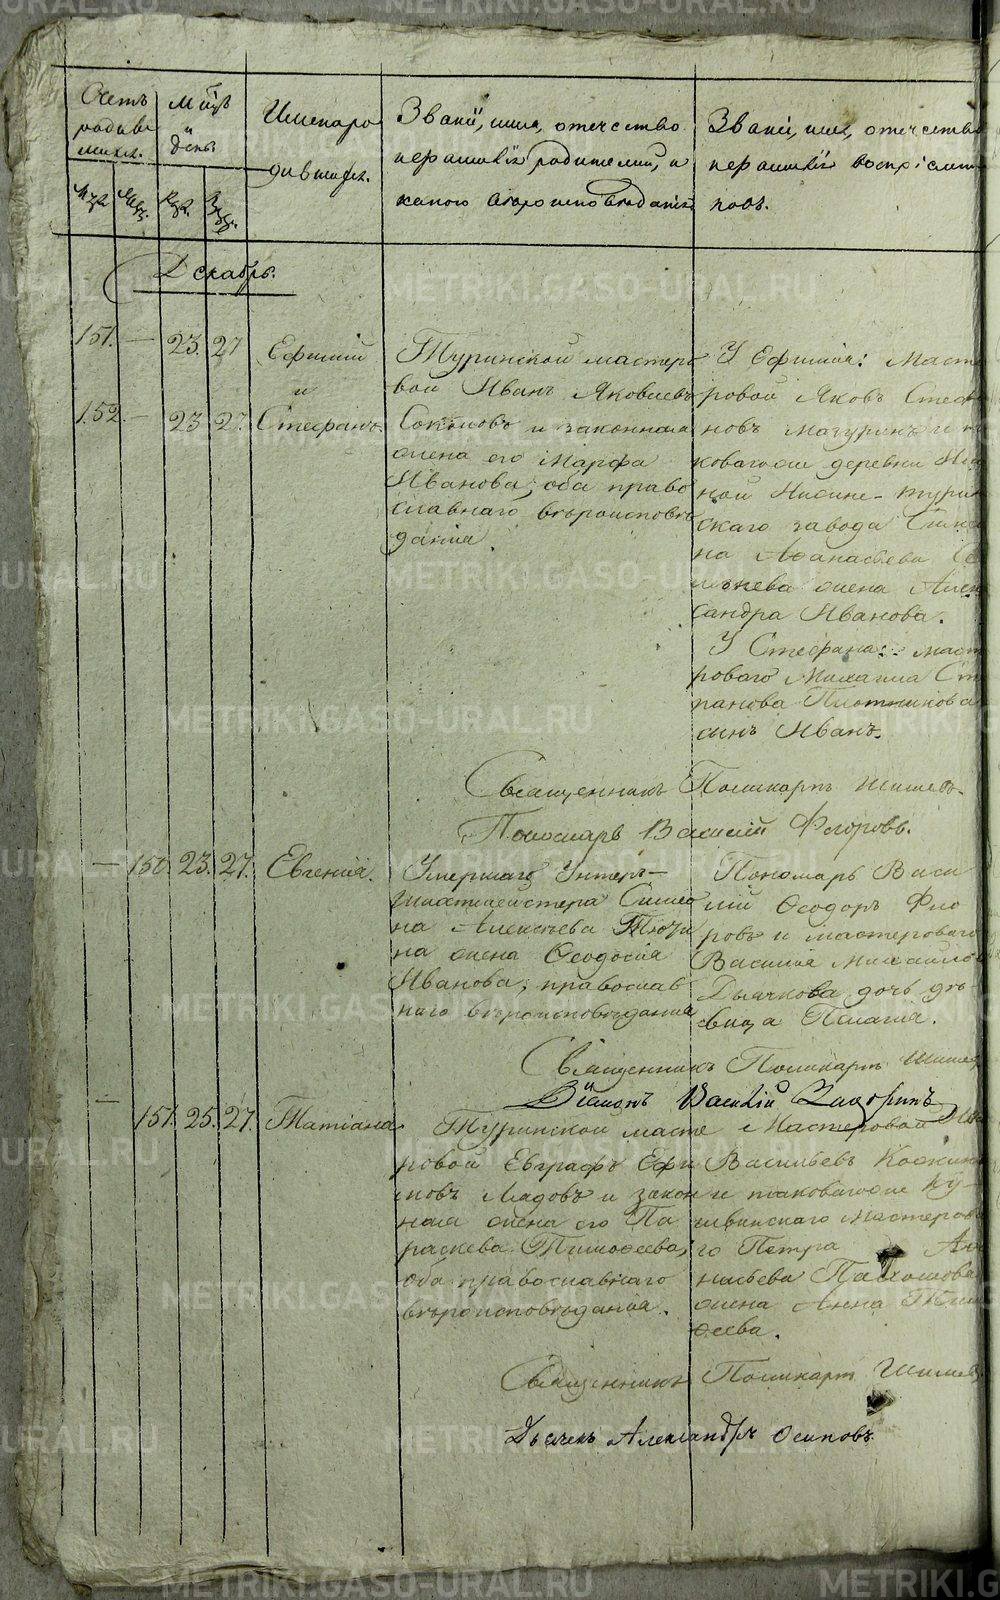 Счетъ родившихся.
Мѣсяцъ и день.
Имена родившихся.
Званiе, имя, отчество
и какого вѣроисповѣданiя
Званiе, имя, отчество
Декабрь.
151. — 23. 27 Ефимiй
и
152. — 23 27. Стефанъ.
Туринской мастеро
вой Иванъ Яковлевъ
Соколовъ и законная
жена его Марфа
Иванова, оба право
славнаго вѣроисповѣ
данiя.
У Ефимiя: Масте
ровой Яковъ Стефа
новъ Мазуринъ и
деревни
ной Нижне-Турин
скаго завода
на Афанасьева
жена Алек
сандра Иванова.
У Стефана: маст
роваго Михаила Сте
панова Плотникова
сынъ Иванъ.
Священникъ Поликарпъ Шишевъ.
Пономарь Василiй Флоровъ.
— 150. 23. 27. Евгенiя.
Умершаго Унтеръ-
шихтмейстера Симео
на Алексѣева
на жена Ѳеодосiя
Иванова, православ
наго вѣроисповѣданiя
Пономарь Васи
лiй Ѳеодоръ Фло
ровъ и мастероваго
Василiя Михайлова
Дьячкова дочь дѣ-
вица Пелагiя.
Священникъ Поликарпъ Шишев
Дiаконъ Василiй
— 151. 25. 27. Татiана
Туринской масте
ровой Евграфъ Ефи
мовъ Лядовъ и закон
ная жена его Па
раскева Тимоѳеева,
оба православнаго
вѣроисповѣданiя.
Мастеровой
Васильевъ
и таковагоже Ку-
швинскаго Мастерова
го Петра Аѳа
насьева
жена Анна Тимо
ѳеева.
Священникъ Поликарпъ Шишев
Дьячекъ Александръ Осиповъ.
METRIKI.GASO-URAL.RU